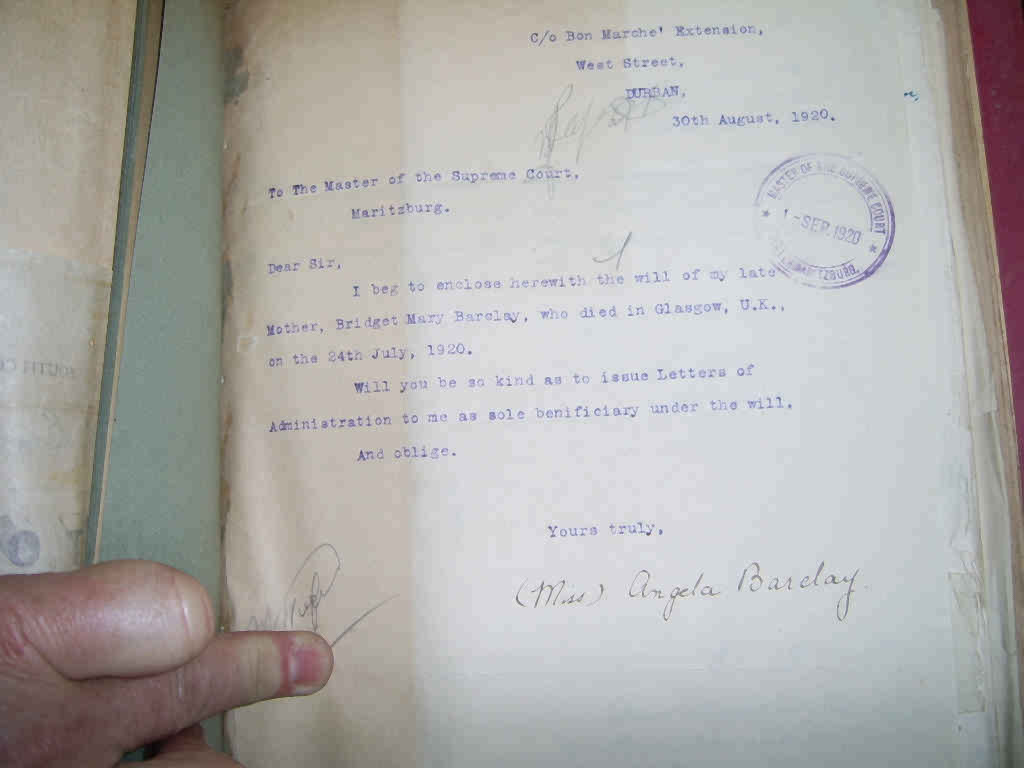 C/o Bon Marche' Extension,
West Street,
DURBAN,
30th August, 1920.
To The Master of the Supreme Court,
Maritzburg.
MASTER OF THE SUPREME COURT
1 - SEP. 1920
Dear Sir,
I beg to enclose herewith the will of my late
Mother, Bridget Mary Barclay, who died in Glasgow, U.K.,
on the 24th July, 1920.
Will you be so kind as to issue Letters of
Administration to me as sole benificiary under the will,
And oblige.
Yours truly,
(Miss) Angela Barclay.